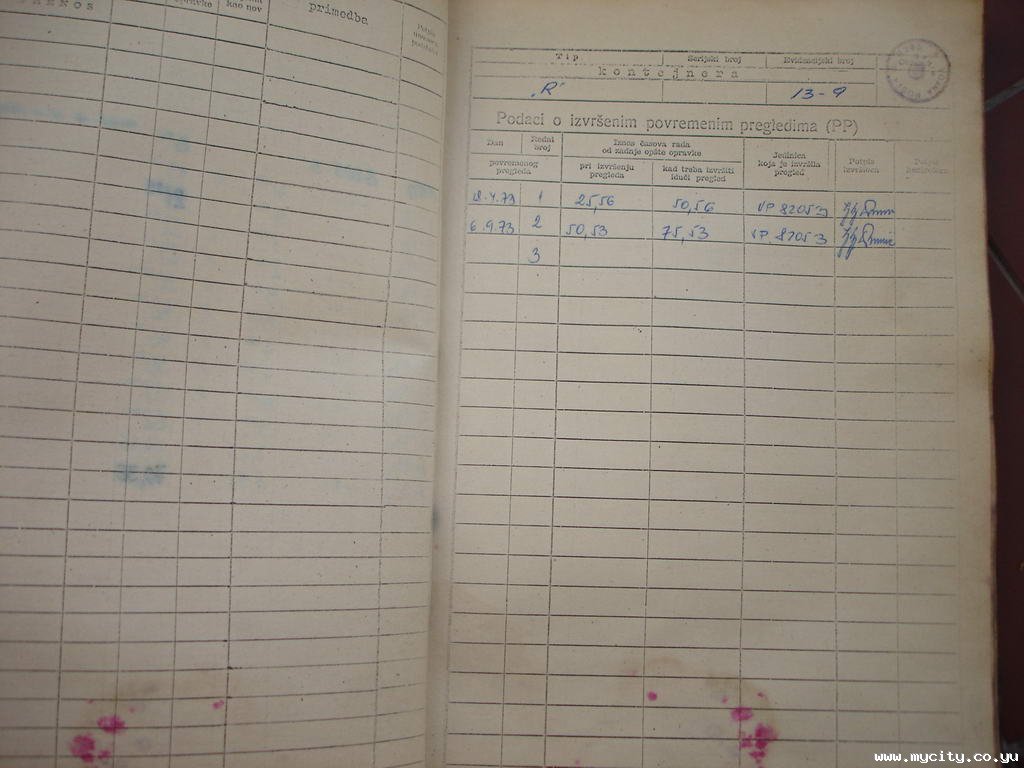 kao nov
primedba
Tip
Serijski broj
Evidencijski broj
kontejnera
„R“
13-9
Podaci o izvršenim povremenim pregledima (PP)
Dan
Redni broj
povremenog pregleda
Iznos časova rada od zadnje opšte opravke
pri izvršenju pregleda
kad treba izvršiti idući pregled
Jedinica koja je izvršila pregled
Potpis izvršioca
1 25,56 50,56 VP 8205-3
6.9.73 2 50,53 75,53 VP 8205-3
3
www.mycity.co.yu